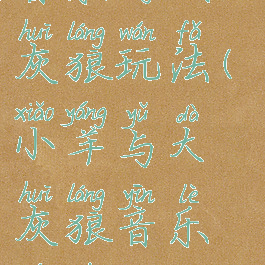 huī láng wán fǎ
灰狼玩法(
xiǎo yáng yǔ dà
小羊与大
huī láng yīn lè
灰狼音乐